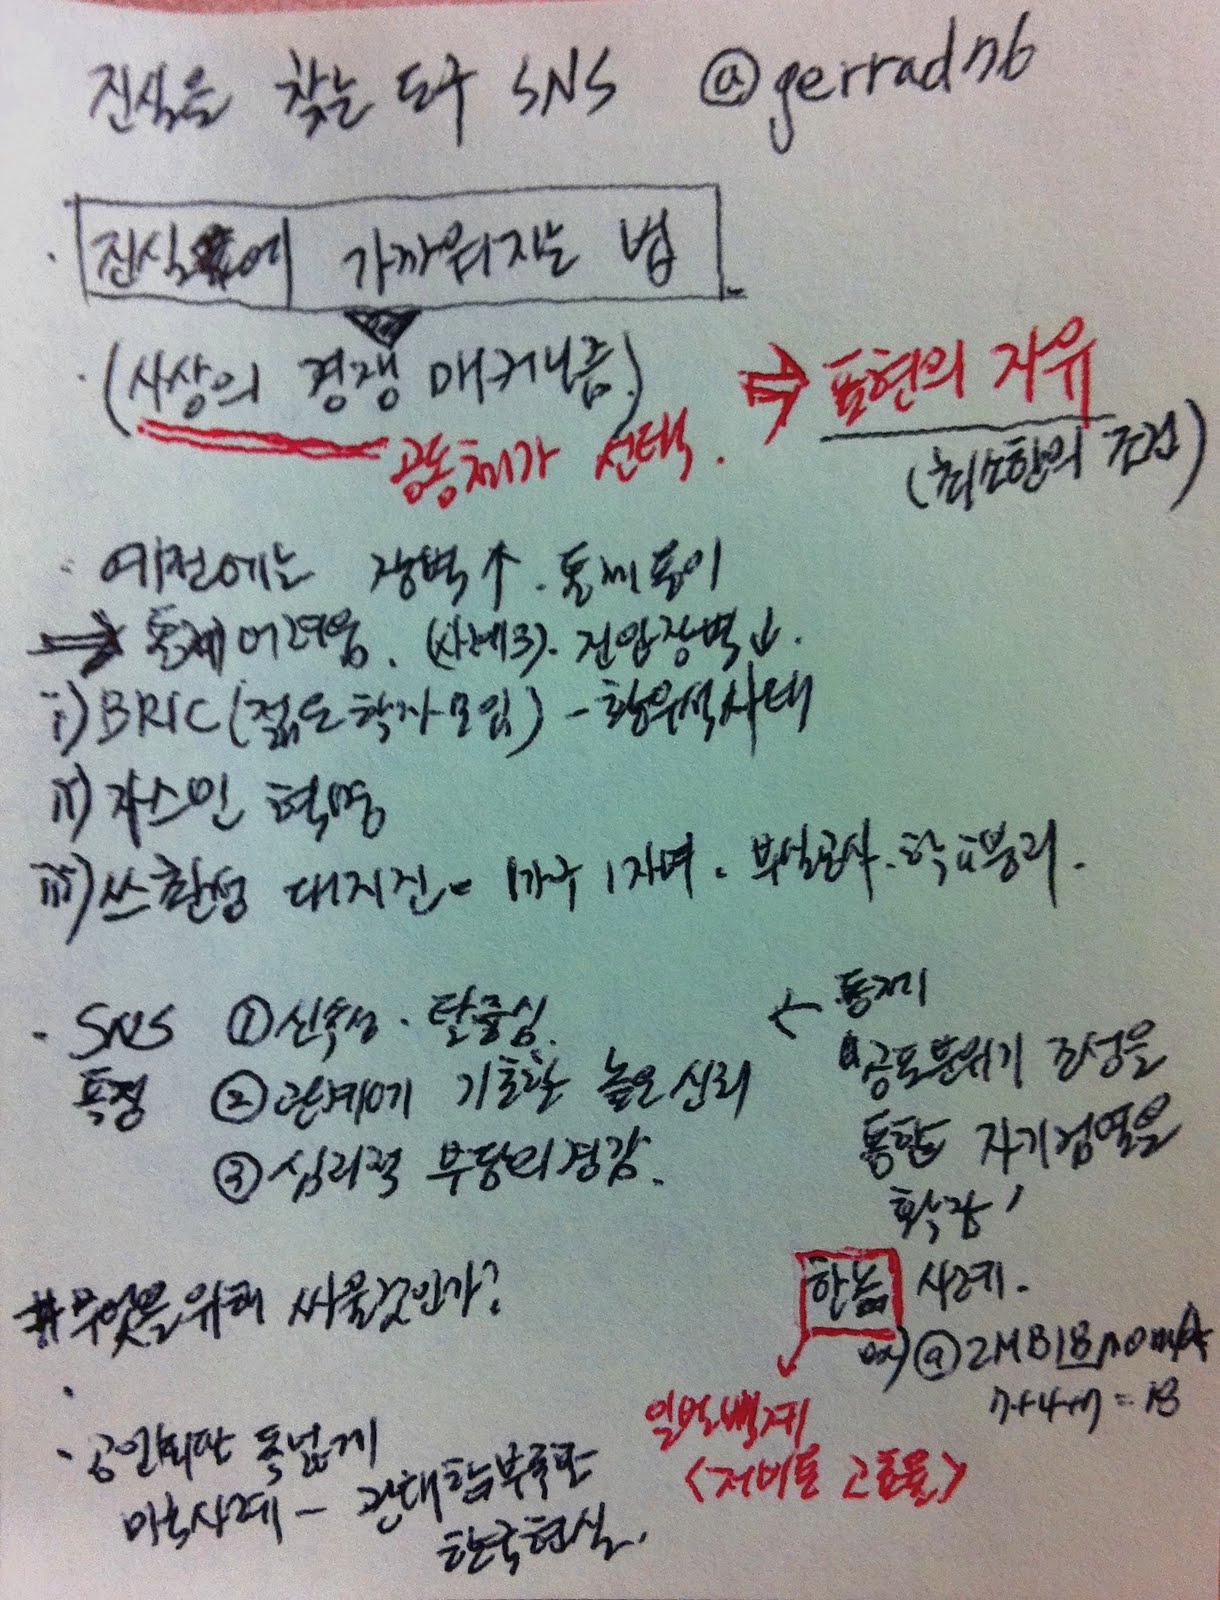 진실을 찾는 도구 SNS @gerradn6
· 진실에 가까워지는 법
· (사상의 경쟁 매커니즘) ⇒ 표현의 자유
공동체가 선택. (최소한의 조건)
· 예전에는 장벽↑. 통제 용이
⇒ 통제 어려움. (사례3). 진입장벽↓.
i) BRIC (젊은 학자 모임) - 황우석 사태
ii) 자스민 혁명
iii) 쓰촨성 대지진 - 1가구 1자녀. 부실공사. 학교붕괴.
· SNS ① 신속성. 탈중심.
특징 ② 관계에 기초한 높은 신뢰
③ 심리적 부담의 경감.
← 통제
"공포분위기 조성을
통한 자기검열을
확장"
한놈 사례.
ex) @2MB18nomA
7+4+7=18
일벌백계
<저비용 고효율>
#무엇을 위해 싸울것인가?
·
· 공인비판 폭넓게
미국사례 - 관대함 부족한
한국현실.